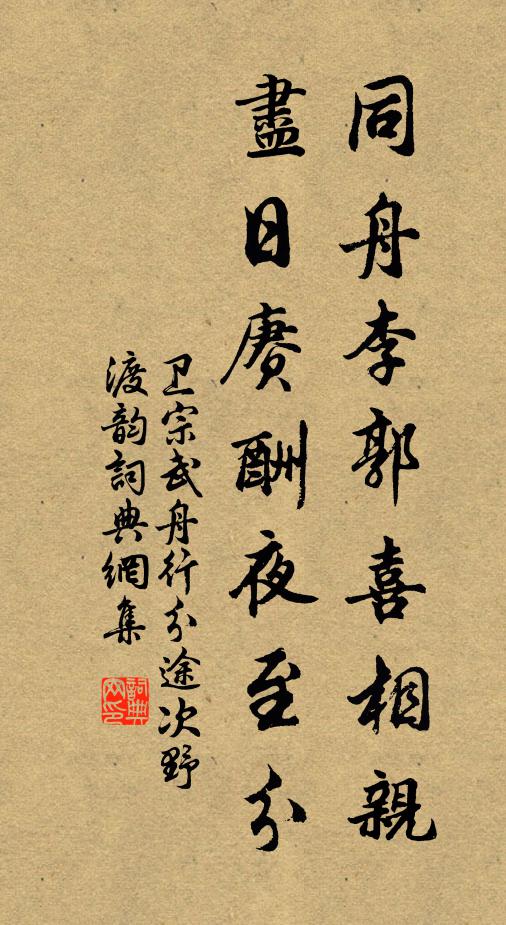 同舟李郭喜相親
盡日賡酬夜至分
卫宗武舟行分途次野
渡韵詞典網集
詞典网印